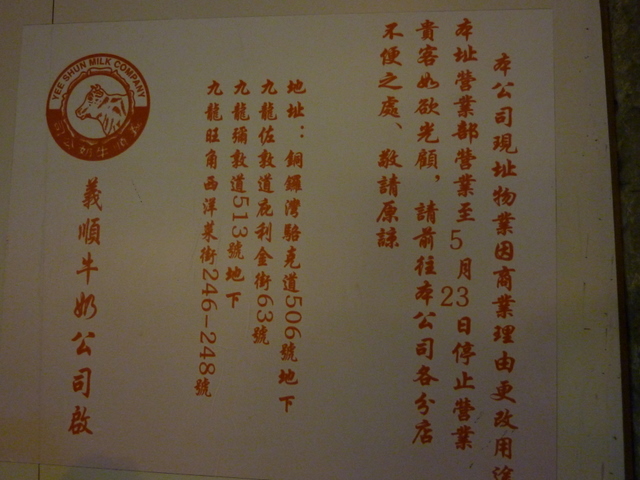 本公司現址物業因商業理由更改用途
本址營業部營業至5月23日停止營業
貴客如欲光顧，請前往本公司各分店
不便之處、敬請原諒
地址：銅鑼灣駱克道506號地下
九龍佐敦道庇利金街63號
九龍彌敦道513號地下
九龍旺角西洋菜街246-248號
義順牛奶公司啟
YEE SHUN MILK COMPANY
司公奶牛順義